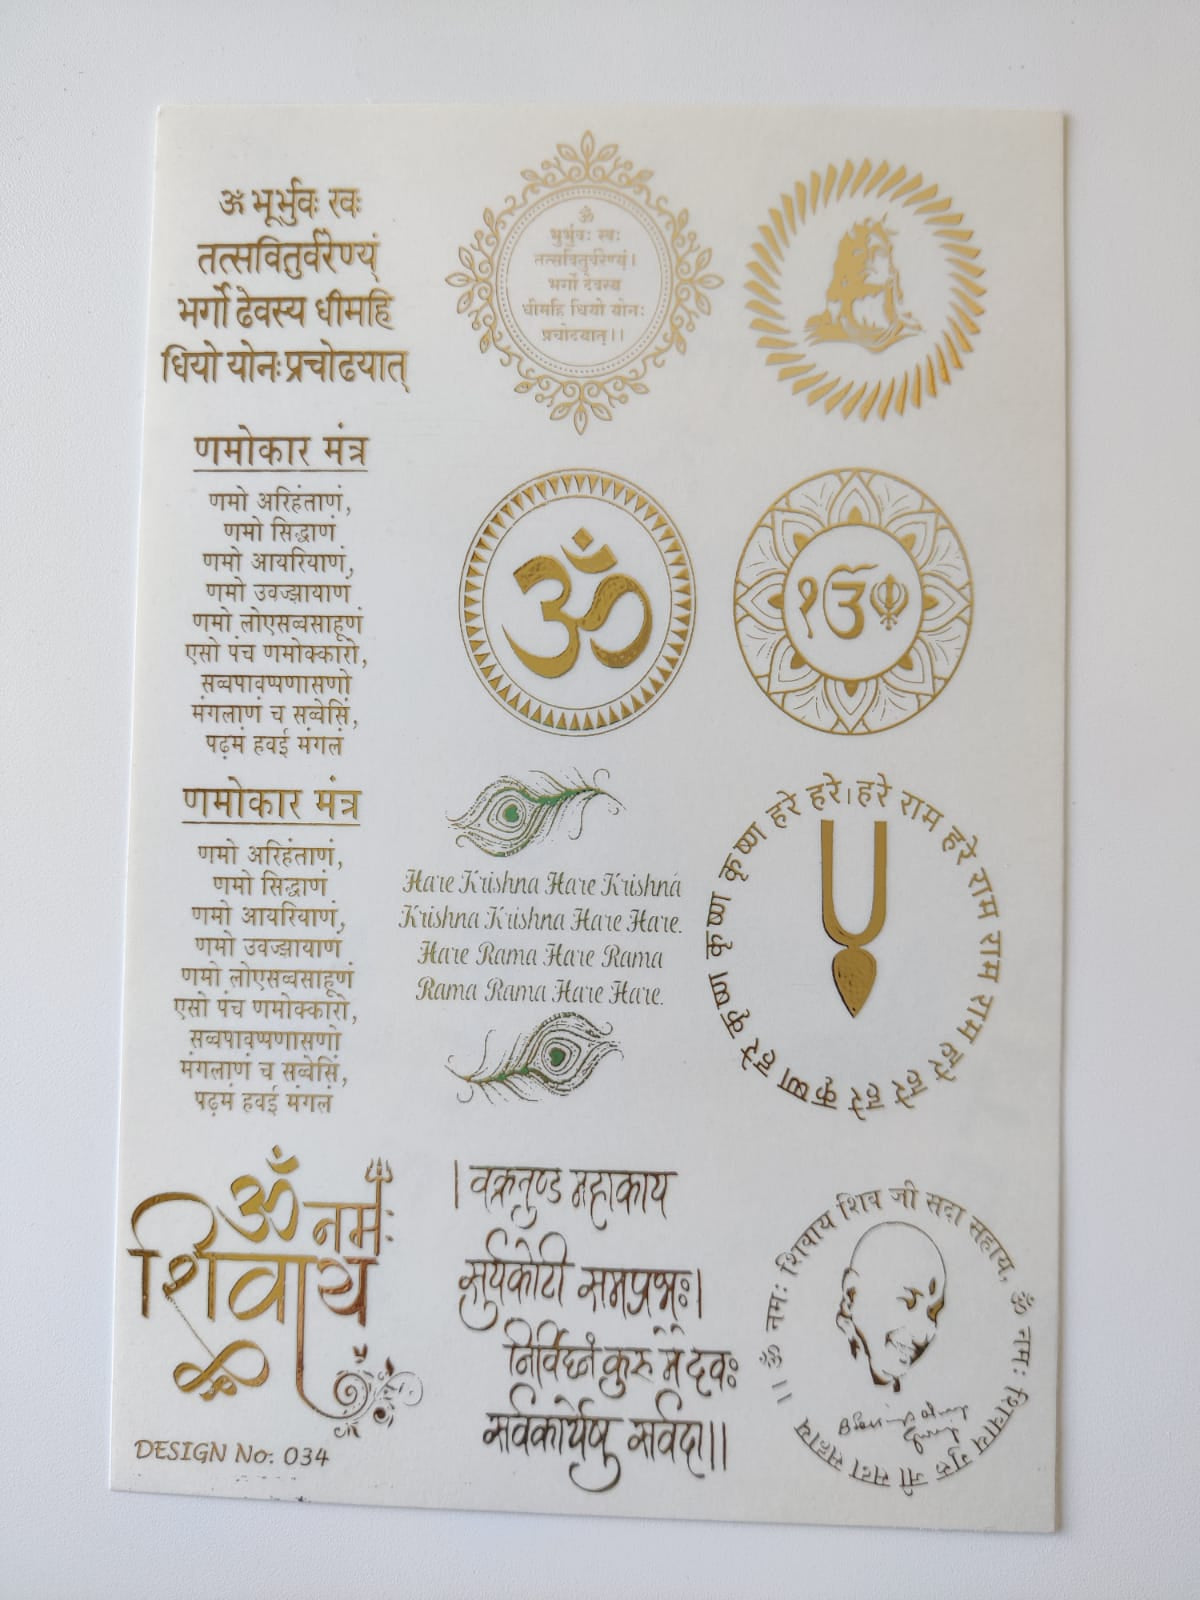 ॐ भूर्भुवः स्वः
तत्सवितुर्वरेण्यं
भर्गो देवस्य धीमहि
धियो योनः प्रचोदयात्
ॐ
भुर्भुवः स्वः
तत्सवितुर्वरेण्यं।
भर्गो देवस्य
धीमहि धियो योनः
प्रचोदयात्।।
णमोकार मंत्र
णमो अरिहंताणं,
णमो सिद्धाणं
णमो आयरियाणं,
णमो उवज्झायाणं
णमो लोएसव्वसाहूणं
एसो पंच णमोक्कारो,
सव्वपावप्पणासणो
मंगलाणं च सव्वेसिं,
पढ़मं हवई मंगलं
ॐ
ੴ
णमोकार मंत्र
णमो अरिहंताणं,
णमो सिद्धाणं
णमो आयरियाणं,
णमो उवज्झायाणं
णमो लोएसव्वसाहूणं
एसो पंच णमोक्कारो,
सव्वपावप्पणासणो
मंगलाणं च सव्वेसिं,
पढ़मं हवई मंगलं
Hare Krishna Hare Krishna
Krishna Krishna Hare Hare.
Hare Rama Hare Rama
Rama Rama Hare Hare.
हरे कृष्ण हरे कृष्ण कृष्ण कृष्ण हरे हरे। हरे राम हरे राम राम राम हरे हरे
ॐ नमः
शिवाय
। वक्रतुण्ड महाकाय
सुर्यकोटी समप्रभः।
निर्विघ्नं कुरु मे देवः
सर्वकार्येषु सर्वदा।।
।। ॐ नमः शिवाय शिव जी सदा सहाय, ॐ नमः शिवाय गुरु जी सदा सहाय
DESIGN No. 034